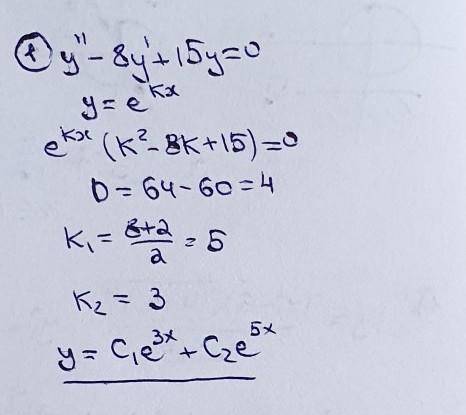 ① y'' - 8y' + 15y = 0
y = e^{kx}
e^{kx} (k² - 8k + 15) = 0
D = 64 - 60 = 4
k₁ = \frac{8+2}{2} = 5
k₂ = 3
y = C₁e^{3x} + C₂e^{5x}